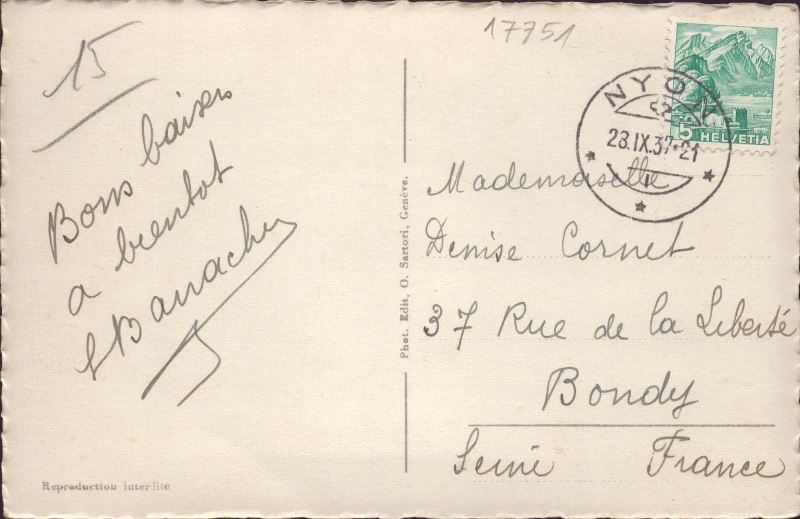 17751
15
Bons baisers
a bientot
NYON
28.IX.37-21
1
5 HELVETIA
Mademoiselle
Denise Cornet
37 Rue de la Liberté
Bondy
Seine France
Phot. Edit. O. Sartori, Genève.
Reproduction interdite